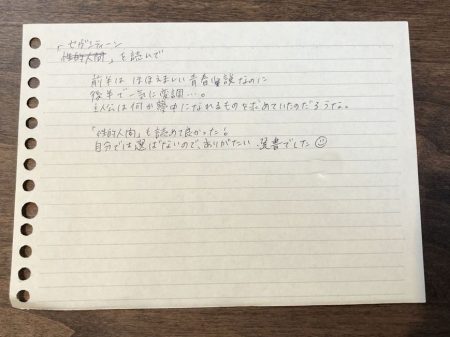 「セヴンティーン
性的人間」を読んで
前半は ほほえましい 青春小説 なのに
後半で一気に変調…。
主人公は何か夢中になれるものを求めていたのだろうな。
「性的人間」も読めて良かった!
自分では選ばないので、ありがたい 選書でした☺